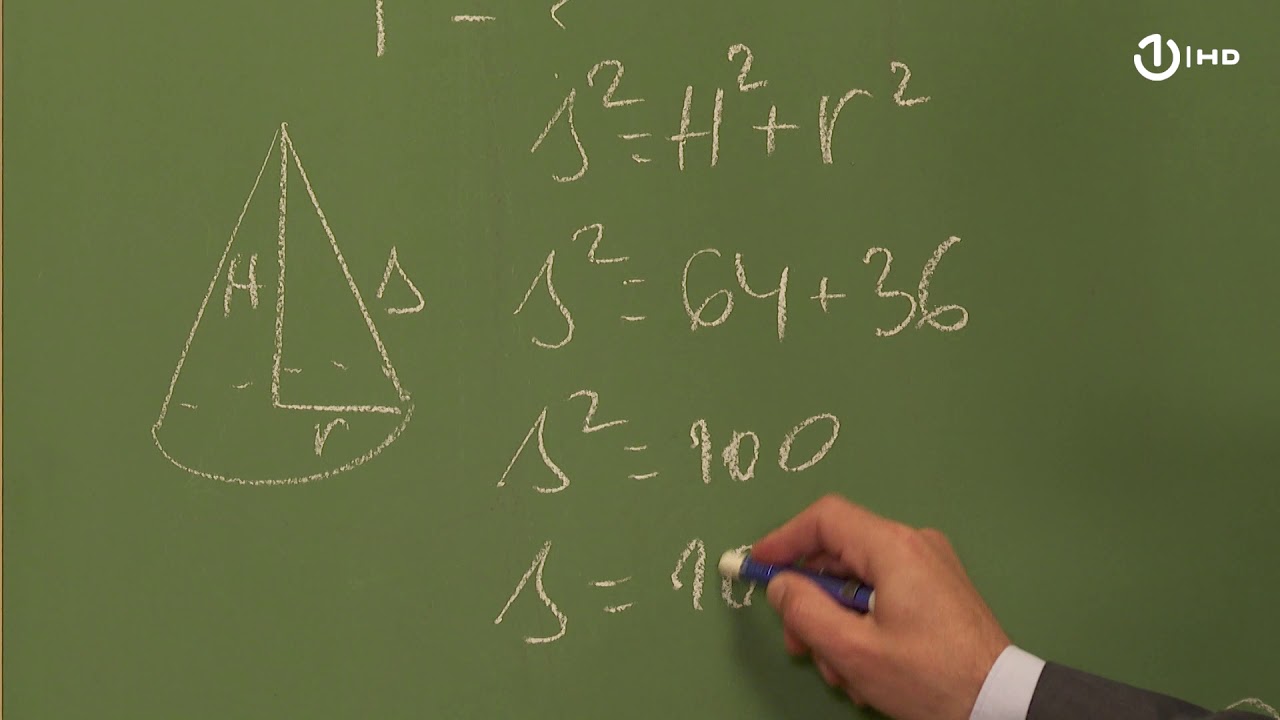 1 | HD
s² = H² + r²
H
s
s² = 64 + 36
r
s² = 100
s = 10